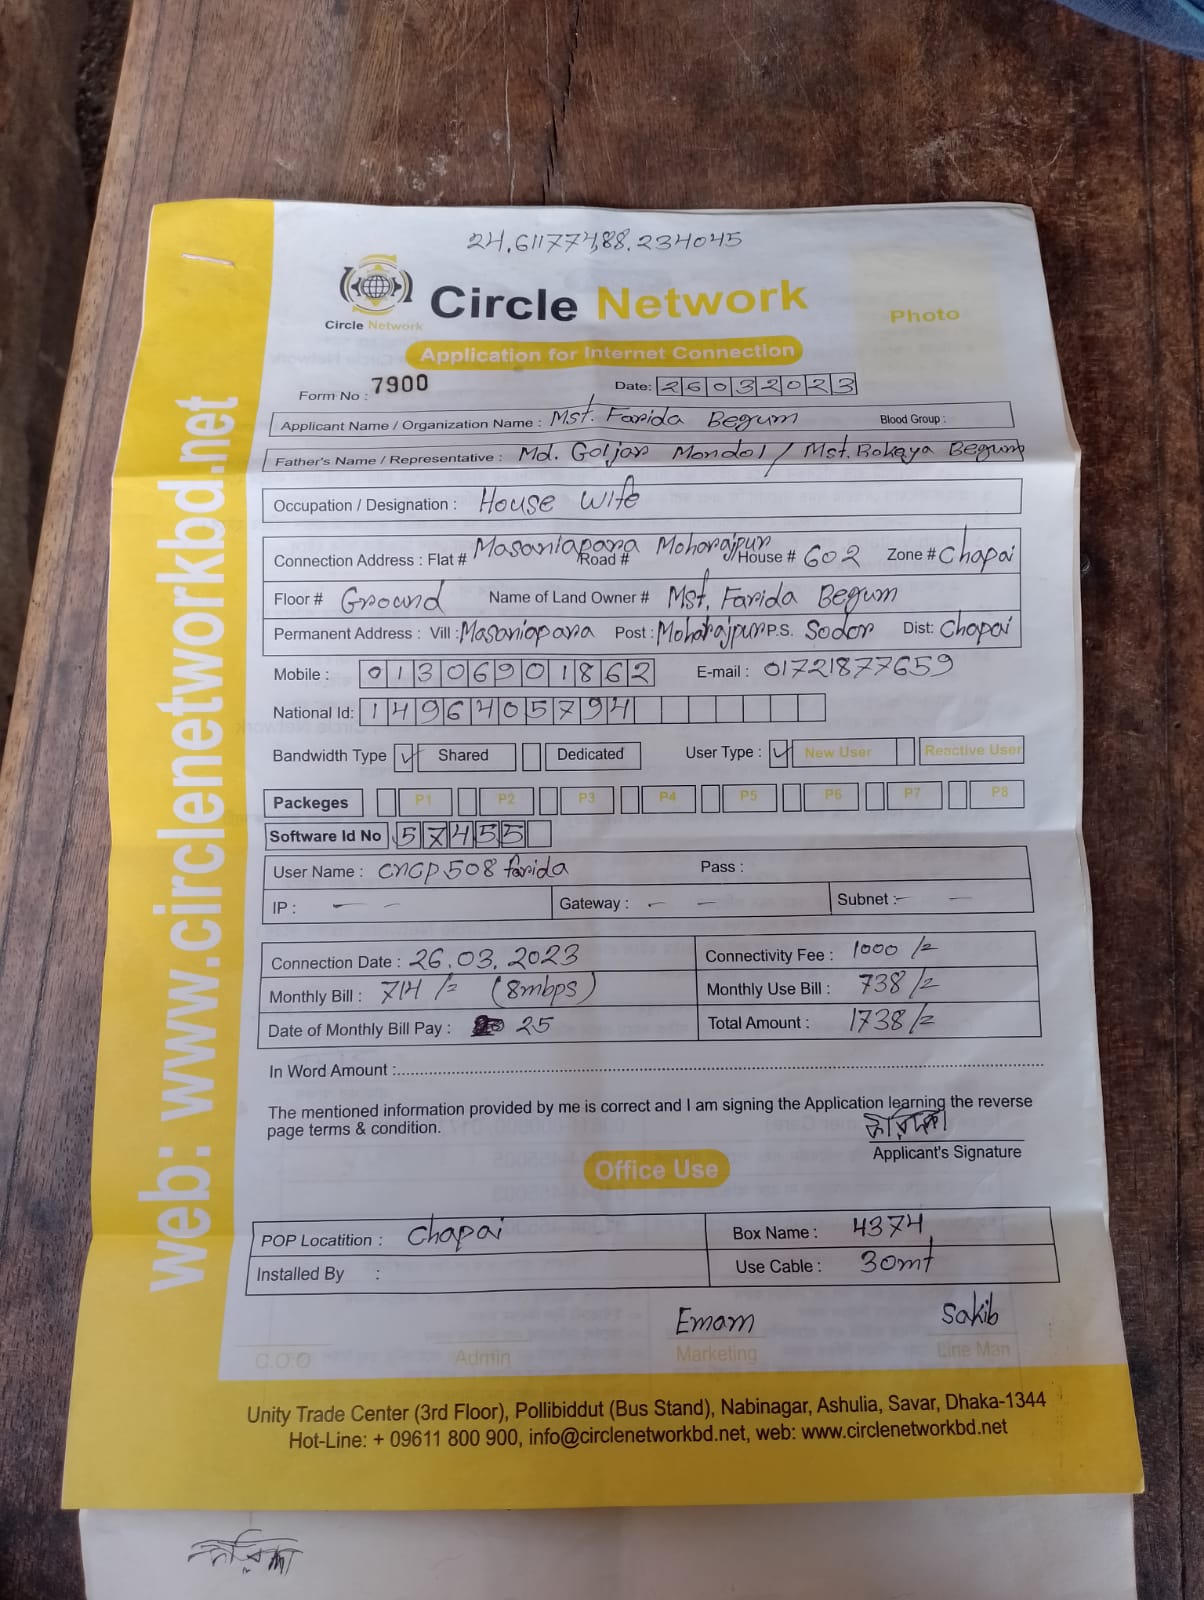 24.611774,88.234045
Circle Network
Circle Network
Photo
Application for Internet Connection
Form No : 7900 Date: 26032023
Applicant Name / Organization Name : Mst. Farida Begum Blood Group :
Father's Name / Representative : Md. Goljar Mondol / Mst. Rokeya Begum
Occupation / Designation : House wife
Connection Address : Flat # Masaniapara Moharajpur Road # House # 602 Zone # Chapai
Floor # Ground Name of Land Owner # Mst. Farida Begum
Permanent Address : Vill : Masaniapara Post : Moharajpur P.S. Sodor Dist: Chapai
Mobile : 01306901862 E-mail : 01721877659
National Id: 1496405794
Bandwidth Type Shared Dedicated User Type : New User Reactive User
Packeges P1 P2 P3 P4 P5 P6 P7 P8
Software Id No 57455
User Name : cncp508farida Pass :
IP : - - Gateway : - - Subnet :- -
Connection Date : 26.03.2023 Connectivity Fee : 1000/=
Monthly Bill : 714/= (8mbps) Monthly Use Bill : 738/=
Date of Monthly Bill Pay : 25 Total Amount : 1738/=
In Word Amount :
The mentioned information provided by me is correct and I am signing the Application learning the reverse
page terms & condition.
ফরিদা
Applicant's Signature
Office Use
POP Locatition : Chapai Box Name : 4374
Installed By : Use Cable : 30mt
Emam Sakib
C.O.O Admin Marketing Line Man
Unity Trade Center (3rd Floor), Pollibiddut (Bus Stand), Nabinagar, Ashulia, Savar, Dhaka-1344
Hot-Line: + 09611 800 900, info@circlenetworkbd.net, web: www.circlenetworkbd.net
web: www.circlenetworkbd.net
ফরিদা